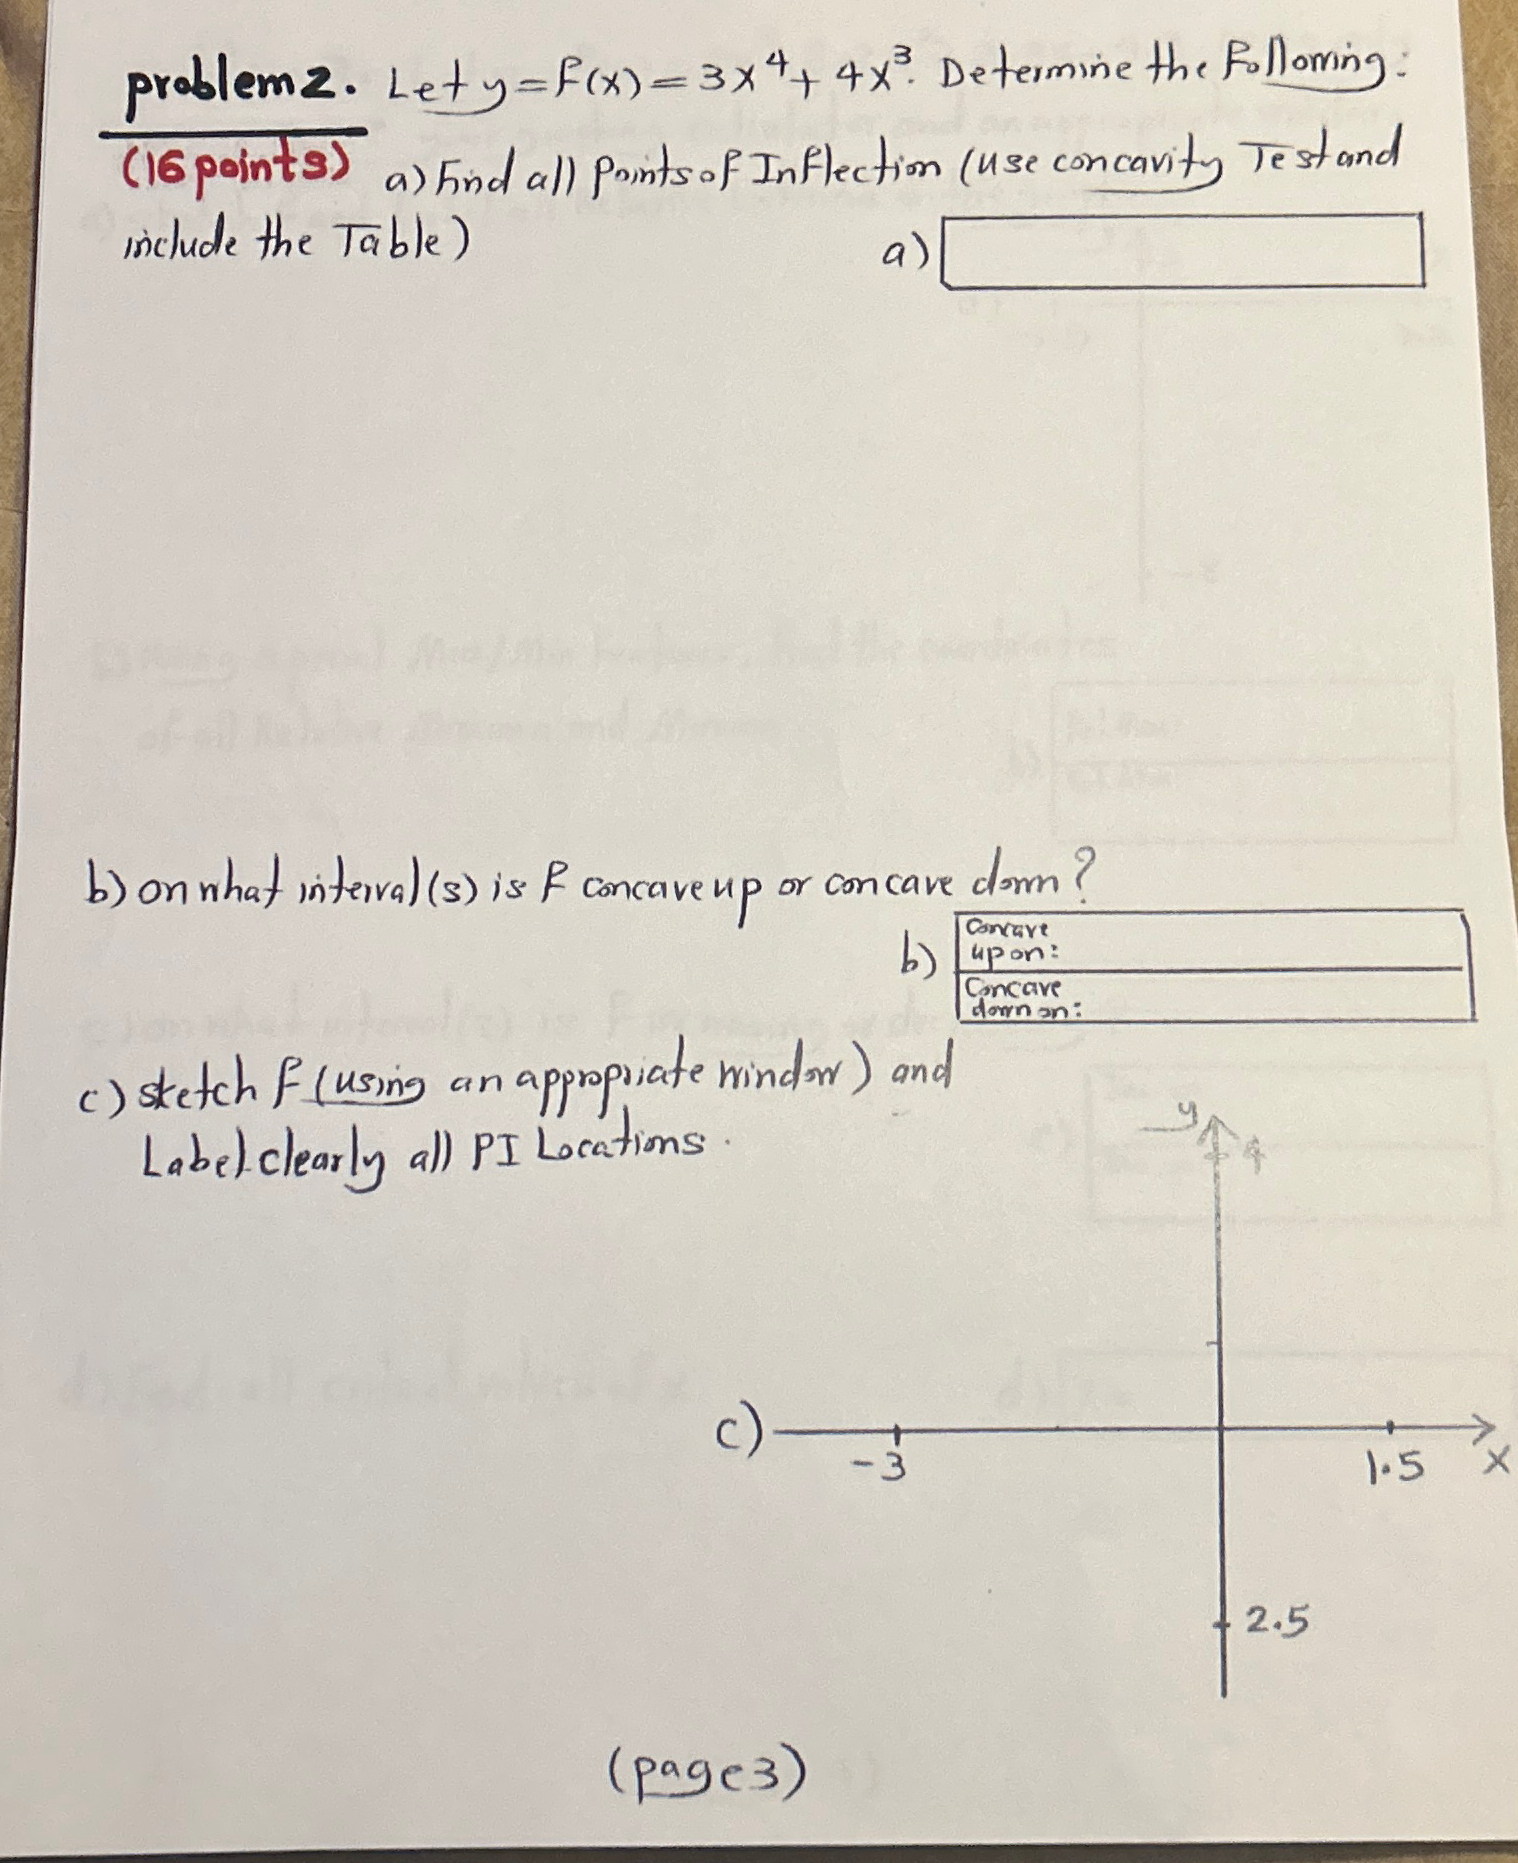 problem 2. Let y = f(x) = 3x⁴ + 4x³. Determine the Following:
(16 points) a) Find all Points of Inflection (use concavity Test and
include the Table)
a)
b) on what interval(s) is f concave up or concave down?
b) Concave
up on:
Concave
down on:
c) sketch f (using an appropriate window) and
Label clearly all PI Locations.
y
4
c)
-3
1.5
x
2.5
(page 3)